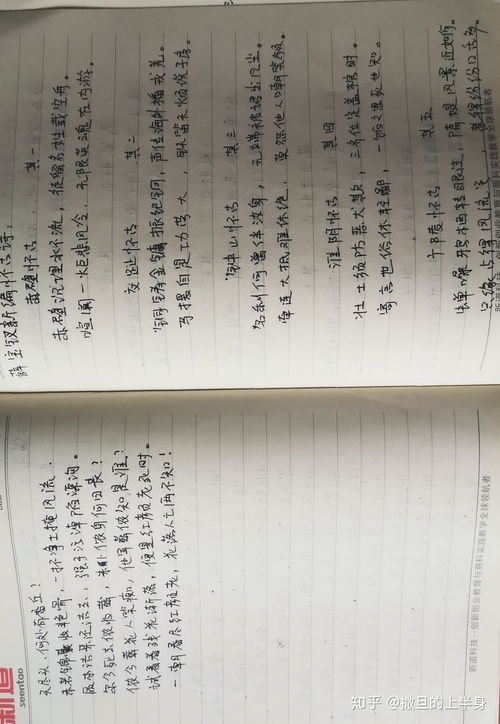 天尽头,何处有香丘?
未若锦囊收艳骨,一抔净土掩风流.
质本洁来还洁去,强于污淖陷渠沟。
尔今死去侬收葬,未卜侬身何日丧?
侬今葬花人笑痴,他年葬侬知是谁?
试看春残花渐落,便是红颜老死时。
一朝春尽红颜老,花落人亡两不知!
新道
seentao
新道科技·创新创业教育与商科实践教学全球领航者
薛宝钗新编怀古诗:
赤壁怀古 其一
赤壁沉埋水不流,徒留名姓载空舟。
喧阗一炬悲风冷,无限英魂在内游。
交趾怀古 其二
铜铸金镛振纪纲,声传海外播戎羌。
马援自是功劳大,铁笛无烦说子房。
钟山怀古 其三
名利何曾伴汝身,无端被诏出凡尘。
牵连大抵难休绝,莫怨他人嘲笑频。
淮阴怀古 其四
壮士须防恶犬欺,三齐位定盖棺时。
寄言世俗休轻鄙,一饭之恩死也知。
广陵怀古 其五
蝉噪鸦栖转眼过,隋堤风景近如何。
只缘占得风流号,惹得纷纷口舌多。
知乎 @撒旦的上半身